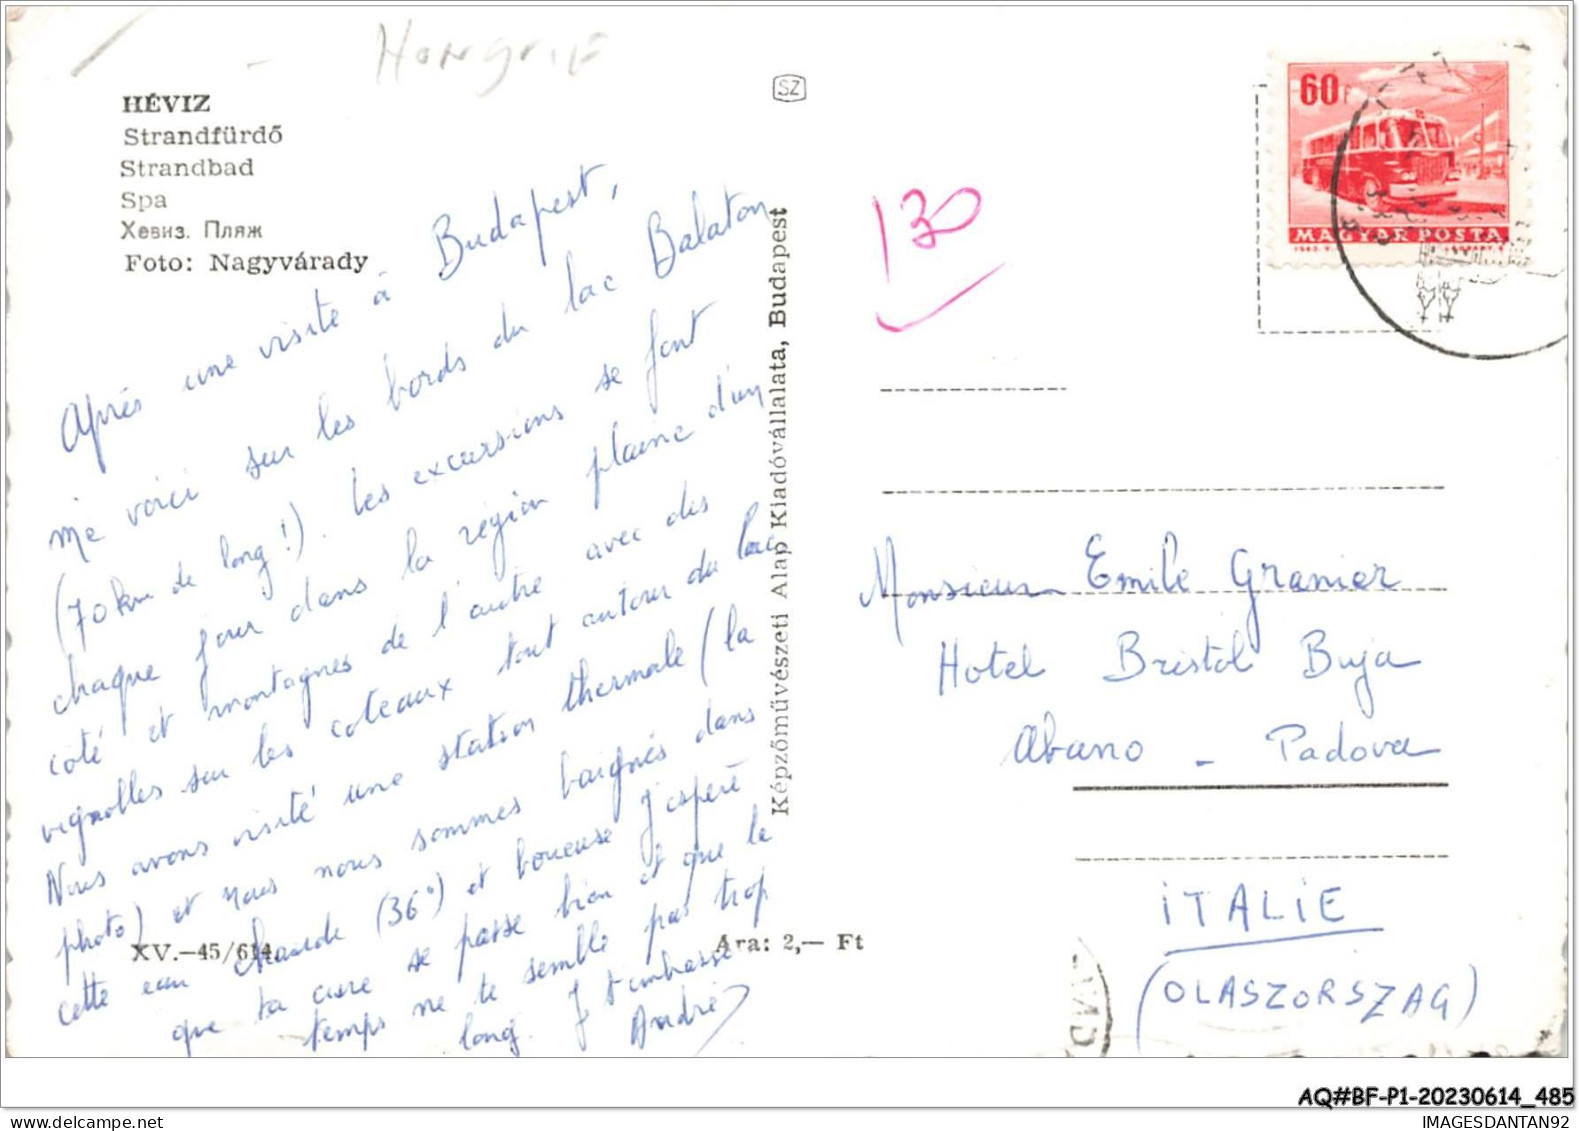 Hongrie
HÉVIZ
Strandfürdő
Strandbad
Spa
Хевиз. Пляж
Foto: Nagyvárady
SZ
60f
MAGYAR POSTA
130
Après une visite à Budapest,
me voici sur les bords du lac Balaton
(70 km de long!). Les excursions se font
chaque jour dans la région plaine d'un
coté et montagnes de l'autre avec des
vignobles sur les coteaux tout autour du lac
Nous avons visité une station thermale (la
photo) et nous nous sommes baignés dans
cette eau chaude (36°) et boueuse J'espère
que ta cure se passe bien et que le
temps ne te semble pas trop
long. J t'embrasse
André
XV.—45/614.
Ara: 2,— Ft
Képzőművészeti Alap Kiadóvállalata, Budapest
Monsieur Emile Granier
Hotel Bristol Buja
Abano - Padova
ITALIE
(OLASZORSZAG)
AQ#BF-P1-20230614_485
IMAGESDANTAN92